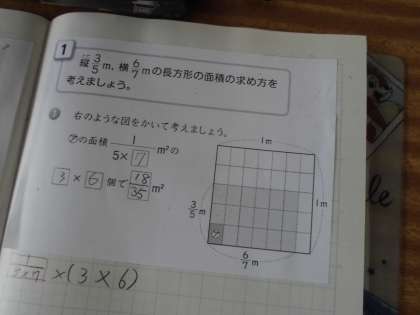 1
縦3/5m, 横6/7mの長方形の面積の求め方を
考えましょう。
1 右のような図をかいて考えましょう。
㋐の面積 1/(5×7) m²の
3 × 6 個で 18/35 m²
1m
1m
3/5 m
㋐
6/7 m
1/(5×7) ×(3×6)